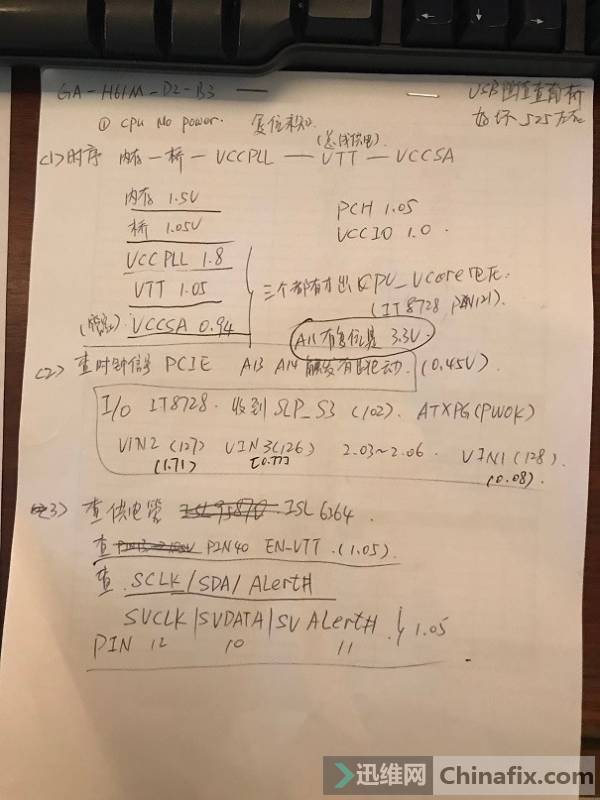 GA-H61M-D2-B3 —
— USB阻值查南桥
好坏 525左右
① CPU No power. 复位
(总线供电)
(1) 时序 内存-桥-VCCPLL — VTT — VCCSA
内存 1.5V
桥 1.05V
VCCPLL 1.8
VTT 1.05
VCCSA 0.94
PCH 1.05
VCCIO 1.0
三个都有才出CPU_Vcore电压.
(IT8728 PIN121).
A11有复位是 3.3V
(2) 查时钟信号 PCIE A13 A14 触发有 动 (0.45V)
I/O IT8728. 收到 SLP_S3 (102). ATXPG(PWOK)
VIN2 (127) VIN3(126) 2.03~2.06. VIN1(128).
(1.71) (0.77) (0.08)
3) 查供电管 ISL95870 ISL6364.
查 PIN40 EN-VTT. (1.05).
查. SCLK/SDA/ALert#
SVCLK|SVDATA|SV ALert# } 1.05
PIN 12 10 11
迅维网 Chinafix.com